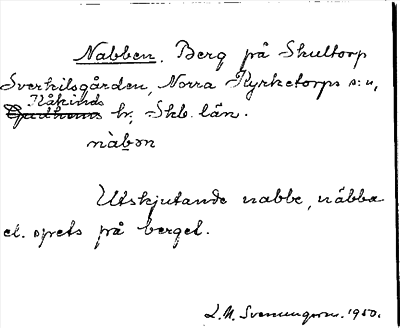 Nabben. Berg på Skultorp
Sverkilsgården, Norra Kyrketorps s:n,
Kåkinds
Gudhems hr, Skb. län.
nàb̲ən
Utskjutande nabbe, näbba
el. spets på berget.
L. M. Svenungsson. 1950.